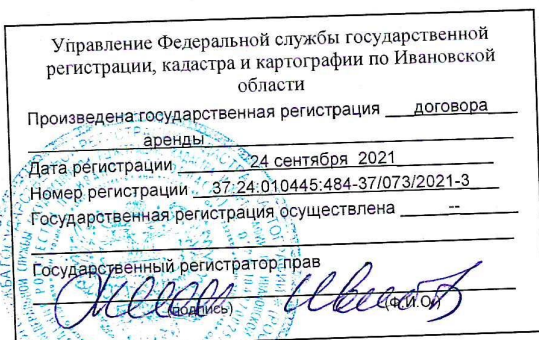 Управление Федеральной службы государственной
регистрации, кадастра и картографии по Ивановской
области
Произведена государственная регистрация договора
аренды
Дата регистрации 24 сентября 2021
Номер регистрации 37:24:010445:484-37/073/2021-3
Государственная регистрация осуществлена --
Государственный регистратор прав
(подпись) (Ф.И.О.)